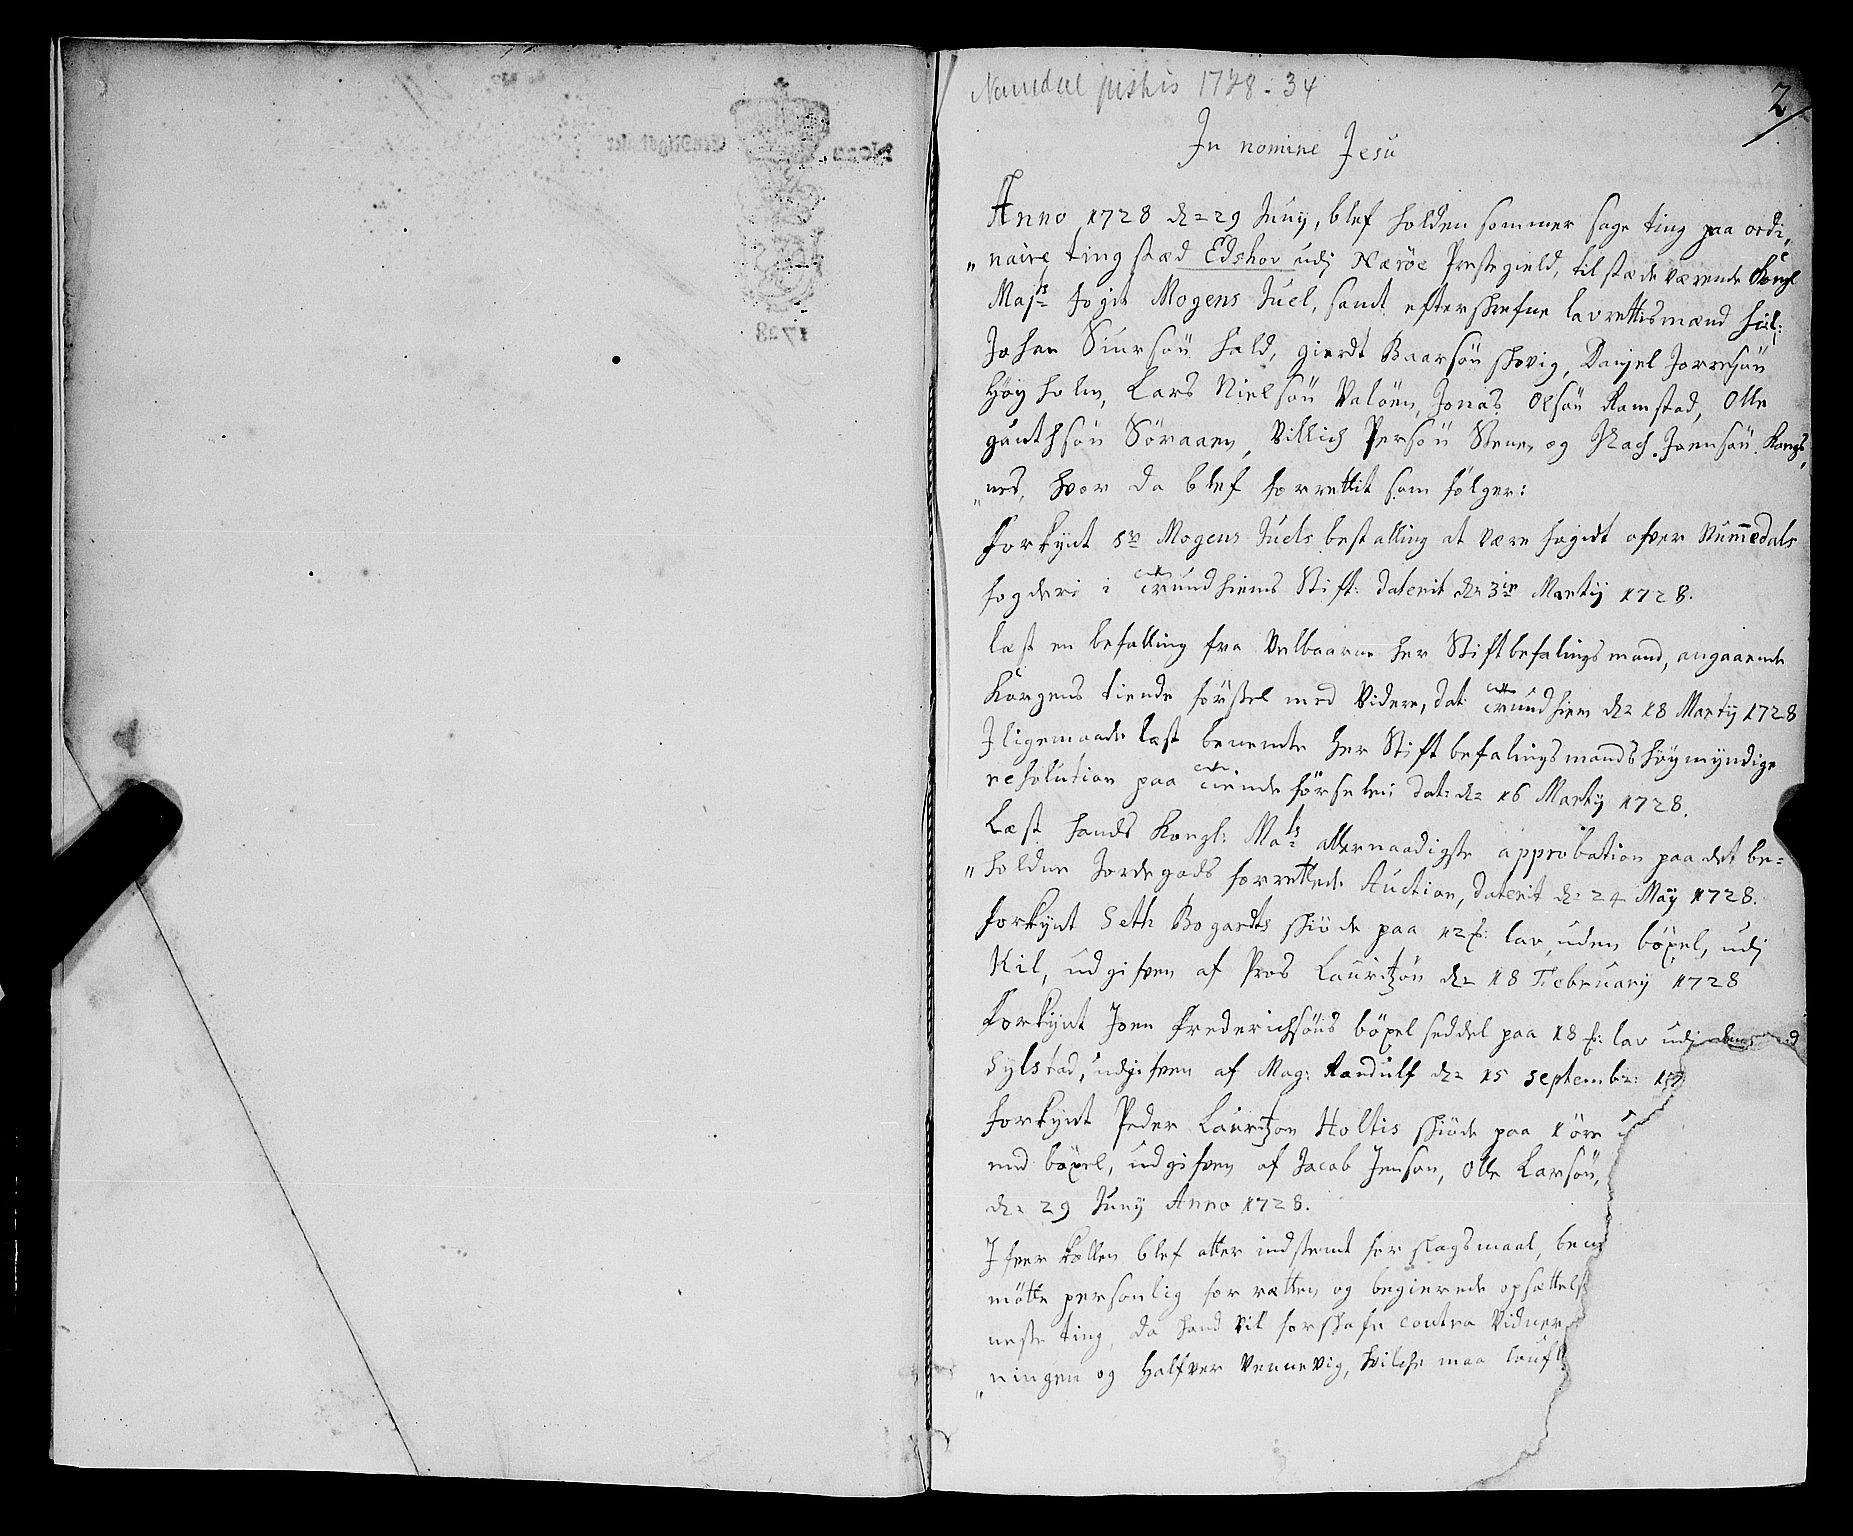 Namdal justis 1728-34
2
In nomine Jesu
Anno 1728 d= 29 Junij, blef holden sommer sage ting paa ordi„
„naire ting stæd Edshov udj Nærøe Prestegield, tilstæde værende Kongl
Majts fogit Mogens Juel, samt efterskrefne lavrettismænd
Johan Siursøn hald, gierdt Baarsøn skovig, Danjel
Høyholm, Lars Nielsøn Valøen, Jonas Olsøn Ramstad, Olle
Søraaen, Villich Persøn Stene, og Joensøn Kongs„
„nes, hvor da blef forrettit som følger:
forkynt Sr Mogens Juels bestalling at være fogidt ofver Nummedals
fogderi i Trundhiems Stift: daterit d= 3 Martij 1728.
læst en befalling fra Velbaarne her Stiftbefalings mand, angaaende
Kongens tiende førssel med Videre, dat Trundhiem d= 18 Martij 1728
J ligemaade læst benemte her Stiftbefalings mands høymyndige
resolution paa tiende førselen: dat: d= 16 Martij 1728.
Læst hands Kongl: Mats allernaadigste approbation paa det be=
„holdne Jordegods forrettede Auction, daterit d= 24 Maij 1728.
forkynt Seth Bogardts skiøde paa 12 lav, uden bøxel, udj
Kil, udgifven af Pros Lauritzøn d= 18 February 1728
Forkynt Joen Frederichsøns bøxel seddel paa 18 lav udj
Sylstad, udgifven af Mag: Randulf d= 15 Septembr:
forkynt Peder Lauritzøn Holtis skiøde paa 1 øre
med bøxel, udgifven af Jacob Jensøn, Olle Larsøn,
d= 29 Junij Anno 1728.
Jfver Kollen blef atter indstemt for slagsmaal,
møtte personlig for rætten og begierede opsættelse
neste ting, da hand vil forskafe contra Vidner
„ningen og Halfver Vennevig, hvilche maa
1728